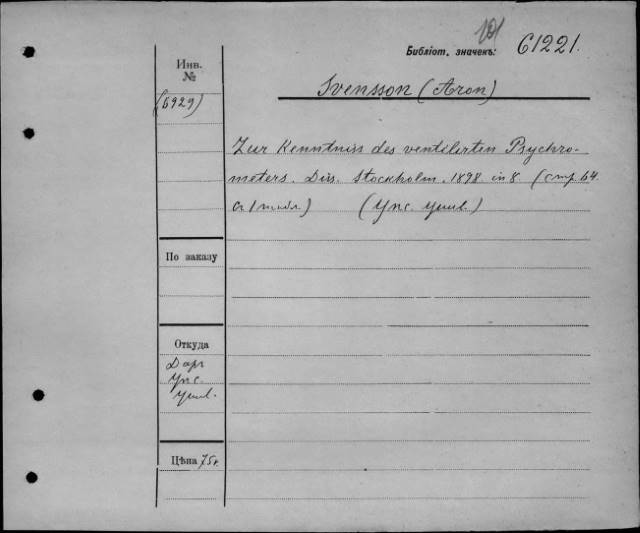 101
Библіот. значекъ: 61221.
Инв.
№
(6929)
Svensson (Aron)
Zur Kenntniss des ventilirten Psychro-
meters. Diss. Stockholm. 1898. in 8. (стр. 64.
1 табл.) (Упс. унив.)
По заказу
Откуда
Даръ
Упс.
унив.
Цѣна 75 к.